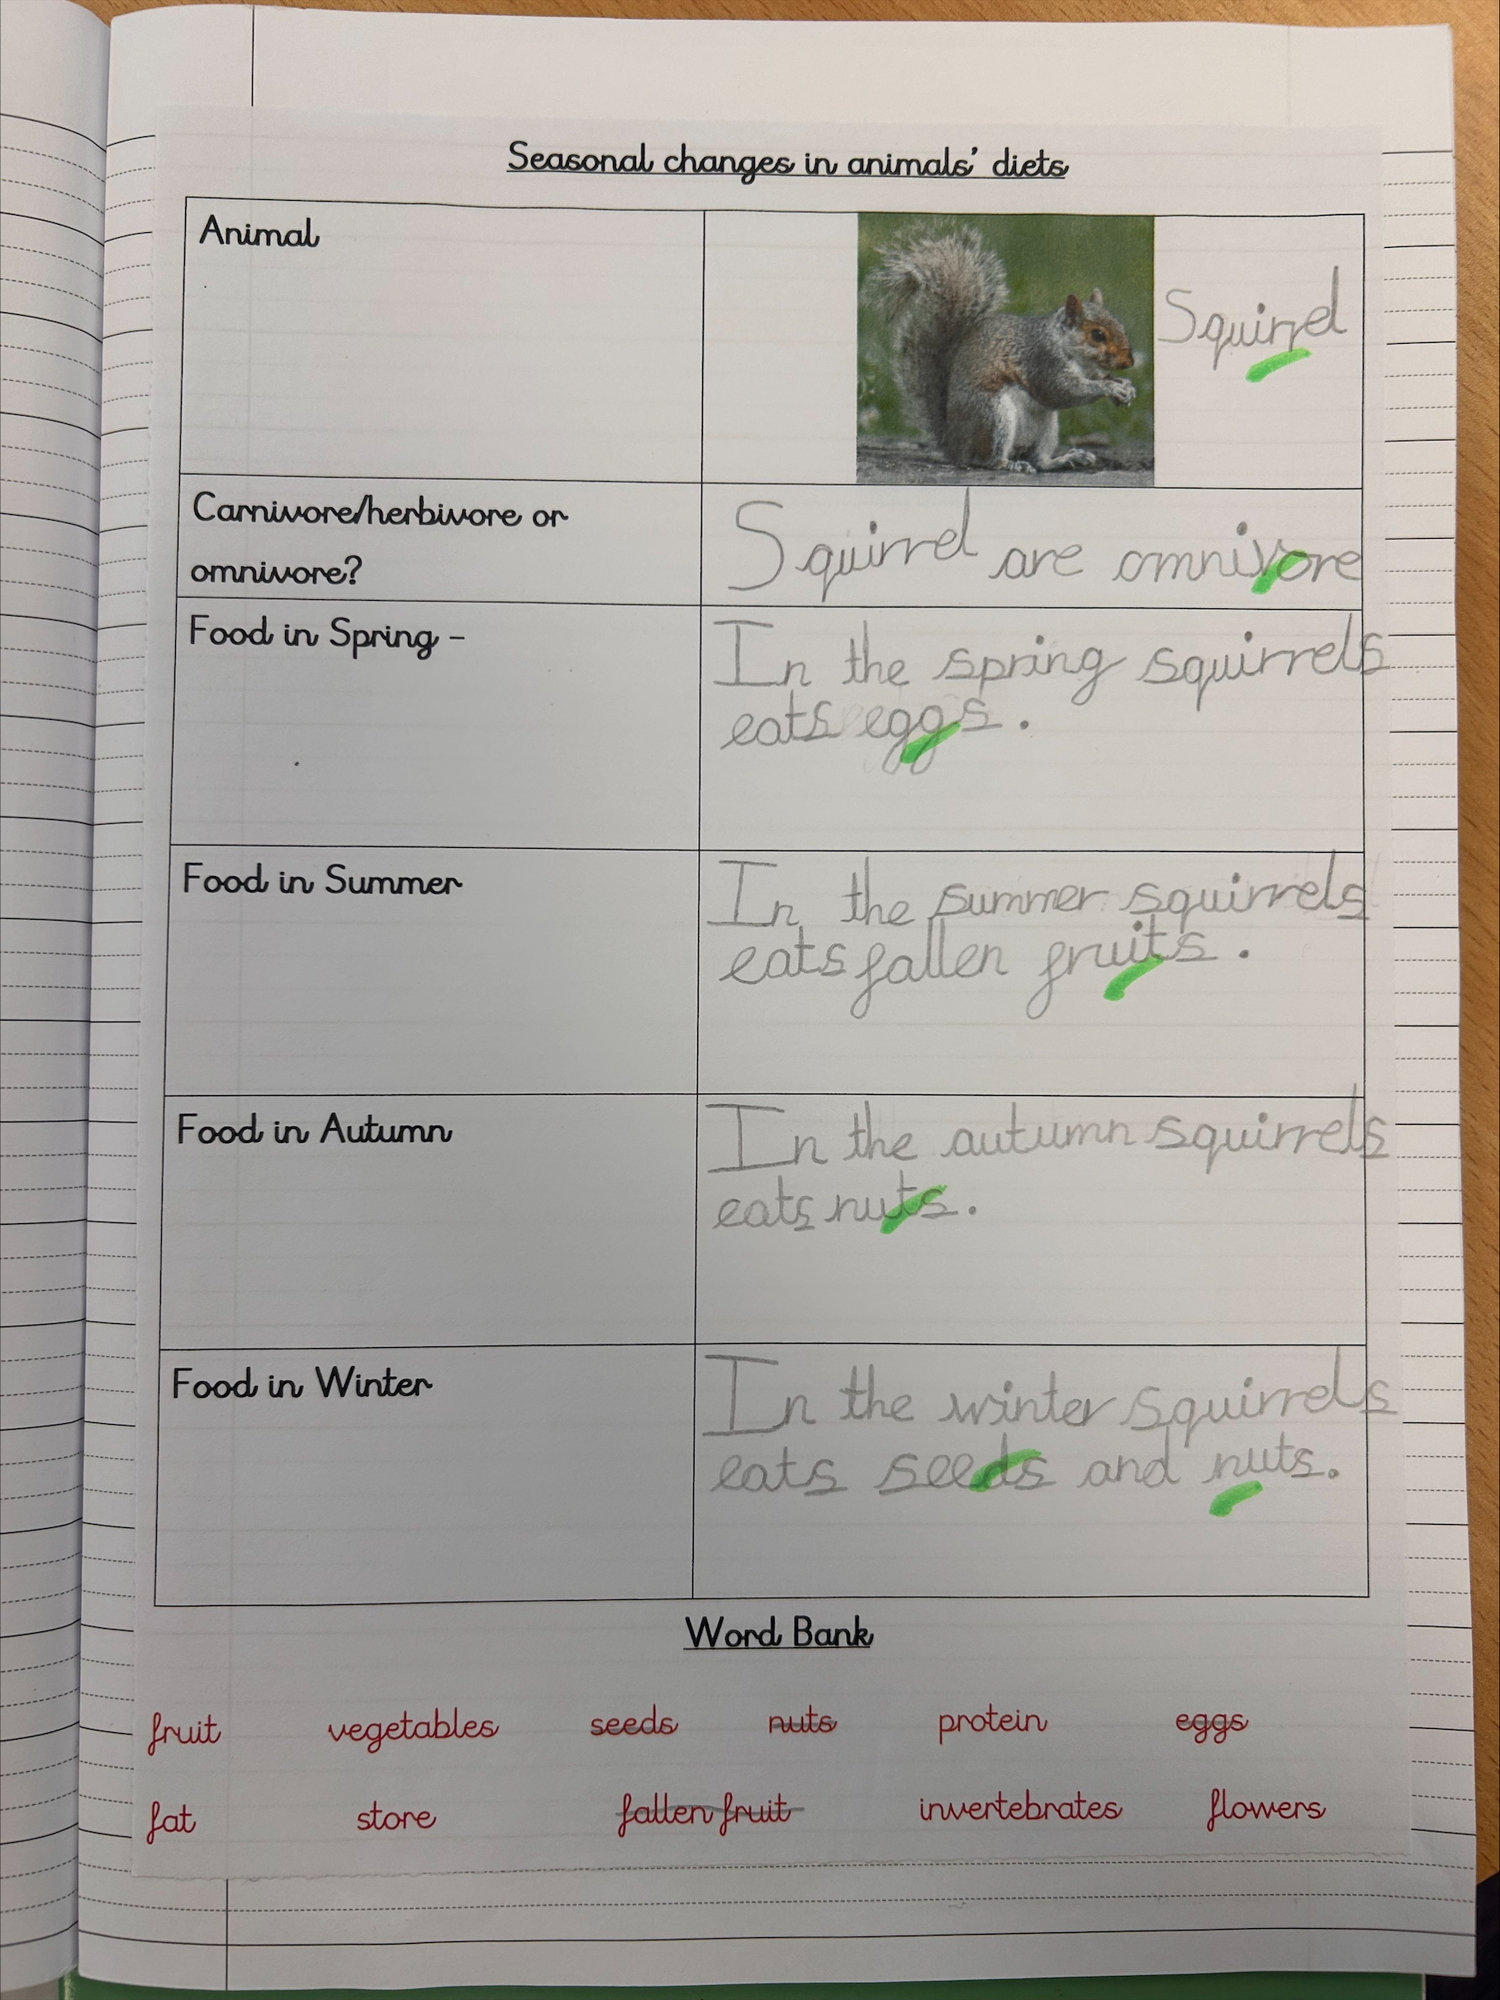 Seasonal changes in animals' diets
Animal
Squirrel
Carnivore/herbivore or
omnivore?
Squirrel are omnivore
Food in Spring -
In the spring squirrels
eats eggs.
Food in Summer
In the summer squirrels
eats fallen fruits.
Food in Autumn
In the autumn squirrels
eats nuts.
Food in Winter
In the winter squirrels
eats seeds and nuts.
Word Bank
fruit vegetables seeds nuts protein eggs
fat store fallen fruit invertebrates flowers